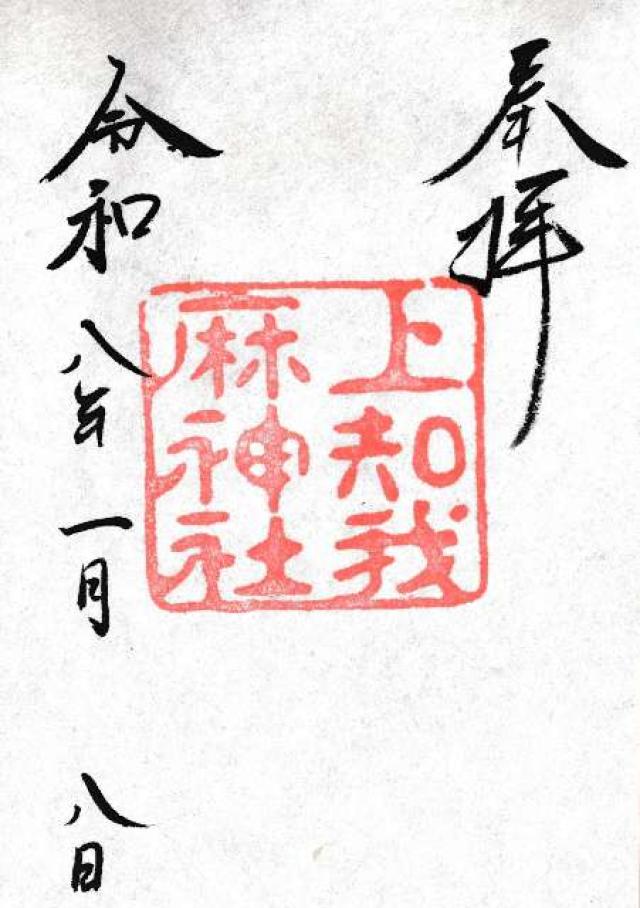 奉拝
上知我
麻神社
令和八年一月八日